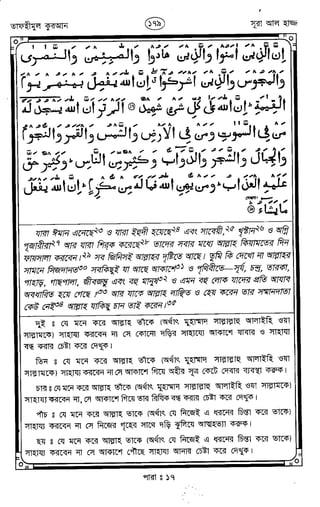 তাফহীমুল কুরআন
১৭৯
সূরা আল হাজ্জ
إِنَّ الَّذِينَ آمَنُوا وَالَّذِينَ هَادُوا وَالصَّابِئِينَ وَالنَّصَارَى
وَالْمَجُوسَ وَالَّذِينَ أَشْرَكُوا إِنَّ اللَّهَ يَفْصِلُ بَيْنَهُمْ يَوْمَ
الْقِيَامَةِ إِنَّ اللَّهَ عَلَى كُلِّ شَيْءٍ شَهِيدٌ أَلَمْ تَرَ أَنَّ اللَّهَ يَسْجُدُ لَهُ
مَنْ فِي السَّمَاوَاتِ وَمَنْ فِي الْأَرْضِ وَالشَّمْسُ وَالْقَمَرُ وَالنُّجُومُ
وَالْجِبَالُ وَالشَّجَرُ وَالدَّوَابُّ وَكَثِيرٌ مِنَ النَّاسِ وَكَثِيرٌ حَقَّ
عَلَيْهِ الْعَذَابُ وَمَنْ يُهِنِ اللَّهُ فَمَا لَهُ مِنْ مُكْرِمٍ إِنَّ اللَّهَ يَفْعَلُ
مَا يَشَاءُ
যারা ঈমান এনেছে ও যারা ইহুদী হয়েছে২৪ এবং সাবেয়ী,২৫ খৃষ্টান২৬ ও অগ্নি
পূজারীরা২৭ আর যারা শির্‌ক করেছে২৮ তাদের সবার মধ্যে আল্লাহ কিয়ামতের দিন
ফায়সালা করবেন।২৯ সব জিনিসই আল্লাহর দৃষ্টিতে আছে। তুমি কি দেখো না আল্লাহর
সামনে সিজদানত৩০ সবকিছুই যা আছে আকাশে৩১ ও পৃথিবীতে—সূর্য, চন্দ্র, তারকা,
পাহাড়, গাছপালা, জীবজন্তু এবং বহু মানুষ৩২ ও এমন বহু লোক যাদের প্রতি আযাব
অবধারিত হয়ে গেছে?৩৩ আর যাকে আল্লাহ লাঞ্ছিত ও হেয় করেন তার সম্মানদাতা
কেউ নেই৩৪ আল্লাহ যাকিছু চান তাই করেন।৩৫
দুই ঃ যে মনে করে আল্লাহ তাঁকে (অর্থাৎ মুহাম্মাদ সাল্লাল্লাহু আলাইহি ওয়া
সাল্লামকে) সাহায্য করবেন না সে কোনো দড়ির সাহায্যে আকাশে যাবার ও সাহায্য
বন্ধ করার চেষ্টা করে দেখুক।
তিন ঃ যে মনে করে আল্লাহ তাঁকে (অর্থাৎ মুহাম্মাদ সাল্লাল্লাহু আলাইহি ওয়া
সাল্লামকে) সাহায্য করবেন না সে আকাশে গিয়ে অহীর সূত্র কেটে দেবার ব্যবস্থা করুক।
চার ঃ যে মনে করে আল্লাহ তাঁকে (অর্থাৎ মুহাম্মাদ সাল্লাল্লাহু আলাইহি ওয়া সাল্লামকে)
সাহায্য করবেন না, সে আকাশে গিয়ে তার রিযিক বন্ধ করার চেষ্টা করে দেখুক।
পাঁচ ঃ যে মনে করে আল্লাহ তাকে (অর্থাৎ যে নিজেই এ ধরনের চিন্তা করে তাকে)
সাহায্য করবেন না সে নিজের গৃহের সাথে দড়ি ঝুলিয়ে আত্মহত্যা করুক।
ছয় ঃ যে মনে করে আল্লাহ তাকে (অর্থাৎ যে নিজেই এ ধরনের চিন্তা করে তাকে)
সাহায্য করবেন না সে আকাশে পৌঁছে সাহায্য আনার চেষ্টা করে দেখুক।
পারা ঃ ১৭